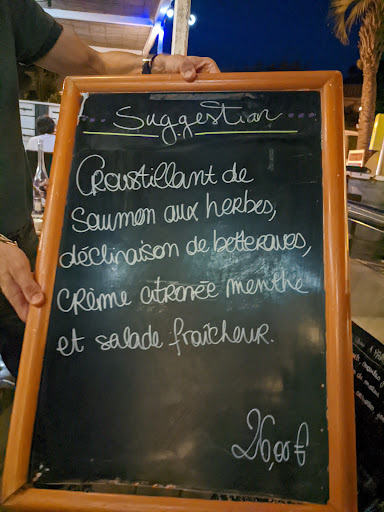 Suggestion
Croustillant de
saumon aux herbes,
déclinaison de betteraves,
crème citronée menthe
et salade fraîcheur.
26,00€